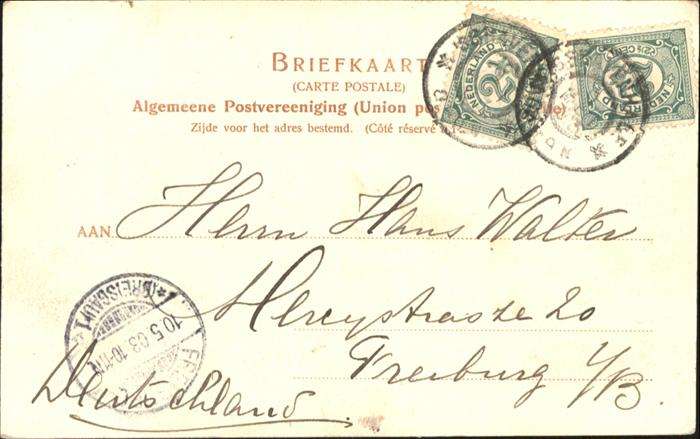 BRIEFKAART
(CARTE POSTALE)
Algemeene Postvereeniging (Union pos
Zijde voor het adres bestemd. (Côté réservé
NEDERLAND
2½
AAN
Herrn Hans Walter
20
Freiburg i/B.
Deutschland
(BREISGAU) 1
10.5.03.10-11